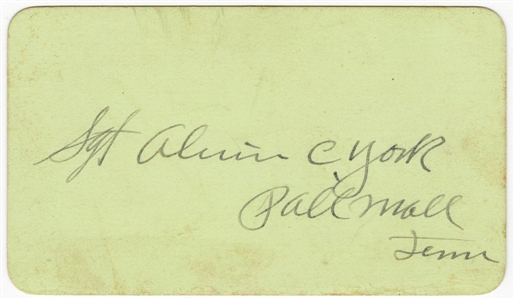 Sgt Alvin C York
Pall Mall
Tenn